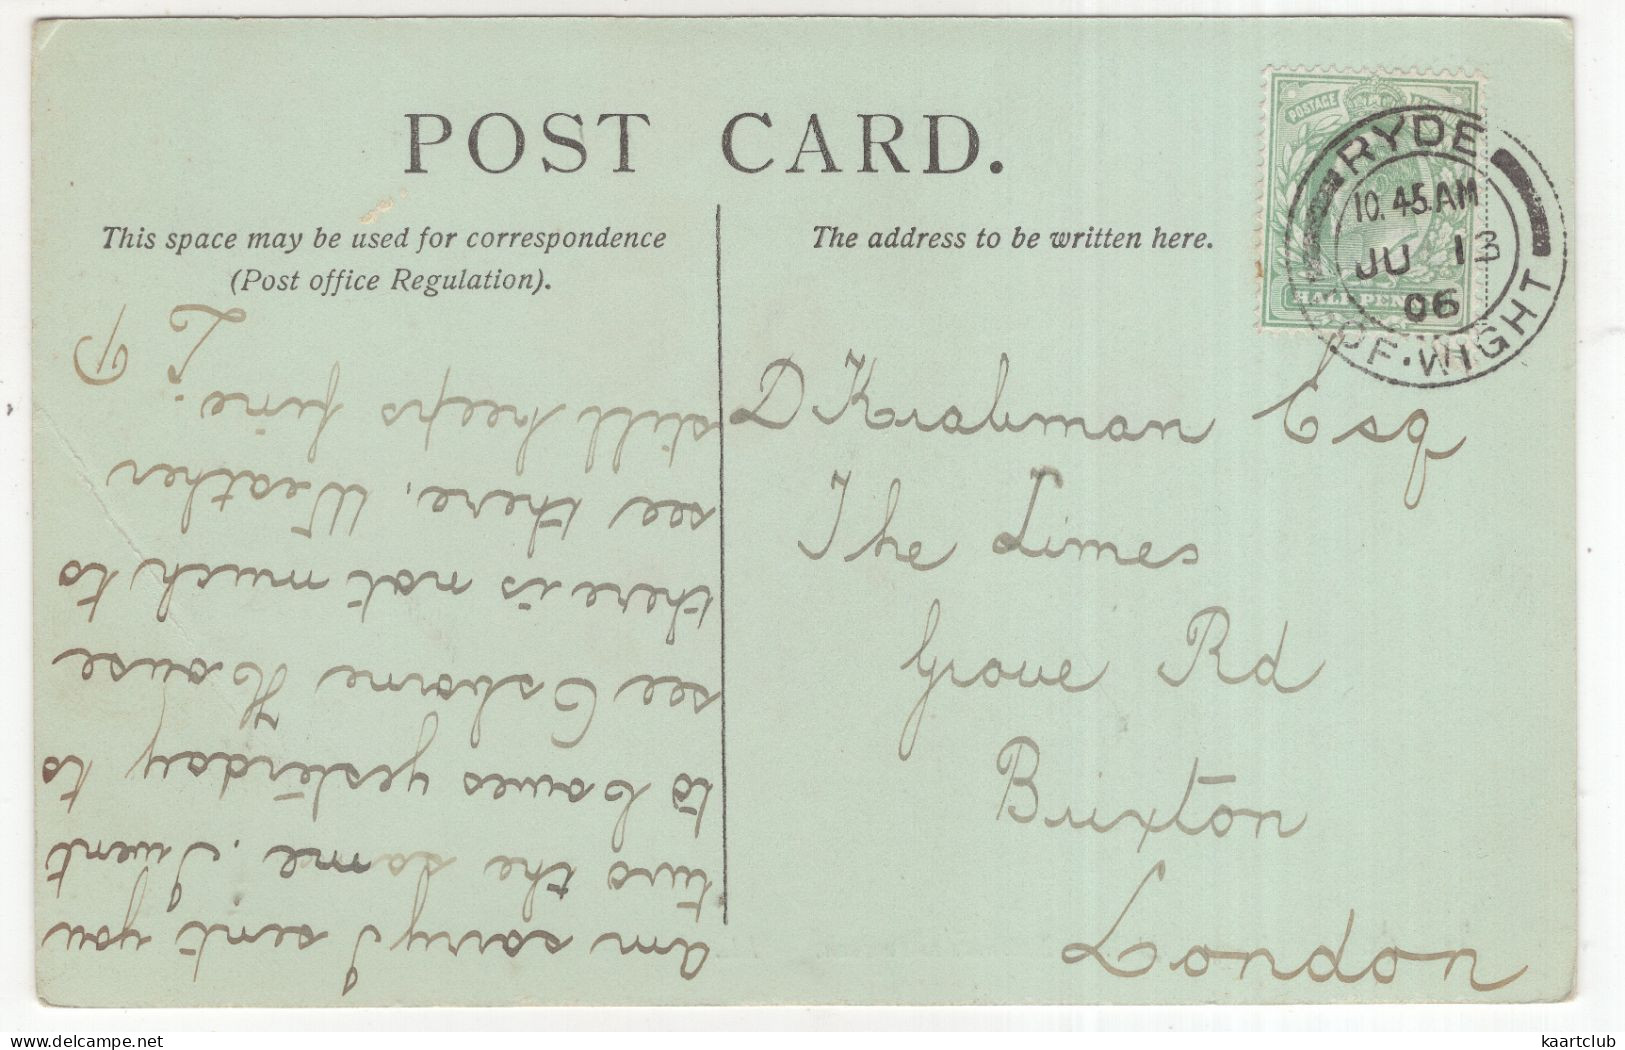 POST CARD.
This space may be used for correspondence
(Post office Regulation).
The address to be written here.
am sorry I sent you
two the same. I went
to Cowes yesterday to
see Osborne House
there is not much to
see there. Weather
still keeps fine.
D Krahman Esq
The Limes
Grove Rd
Brixton
London
POSTAGE
HALFPENNY
RYDE
10.45 AM
JU 13
06
OF WIGHT
kaartclub